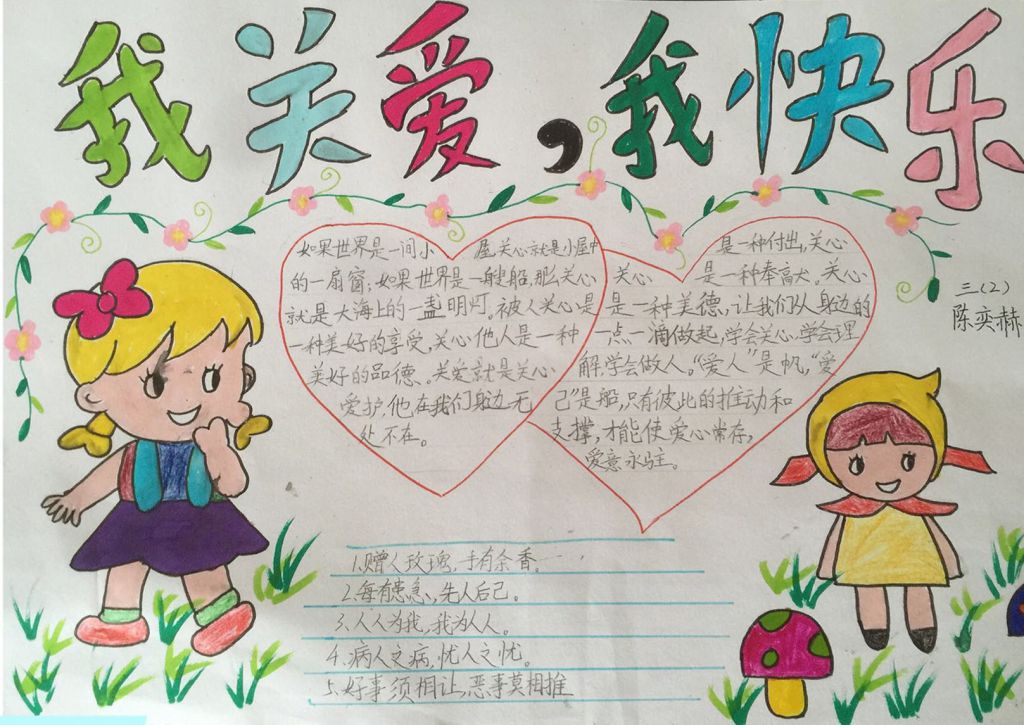 我关爱,我快乐
如果世界是一间小屋,关心就是小屋中
的一扇窗;如果世界是一艘船,那么关心
就是大海上的一盏明灯。被人关心是
一种美好的享受,关心他人是一种
美好的品德。关爱就是关心
爱护,他在我们身边无
处不在。
是一种付出,关心
关心 是一种奉献。关心
是一种美德,让我们从身边的
一点一滴做起,学会关心,学会理
解,学会做人。“爱人”是帆,“爱
己”是船,只有彼此的推动和
支撑,才能使爱心常存,
爱意永驻。
三(2)
陈奕赫
1.赠人玫瑰,手有余香。...
2.每有患急,先人后己。
3.人人为我,我为人人。
4.病人之病,忧人之忧。
5.好事须相让,恶事莫相推